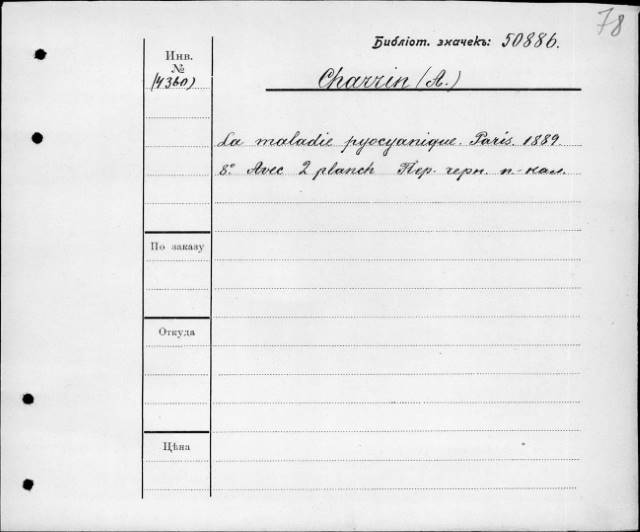 78
Библіот. значекъ: 50886.
Инв.
№
(4360)
Charrin (A.)
La maladie pyocyanique. Paris. 1889.
8º Avec 2 planch Пер. черн. п.-кал.
По заказу
Откуда
Цѣна